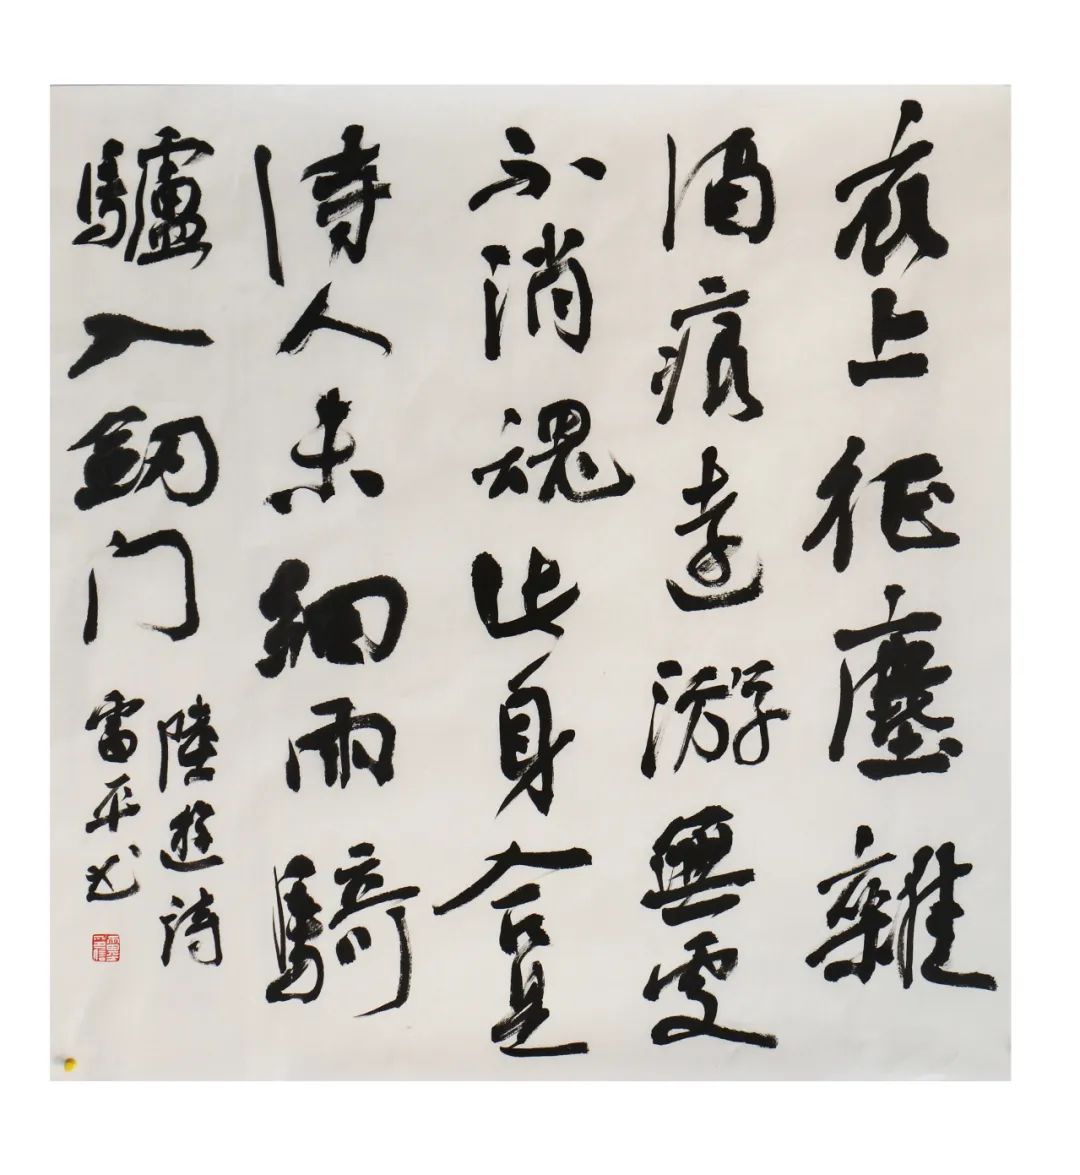 衣上征塵雜
酒痕遠游無處
不消魂此身合是
詩人未細雨騎
驢入劍门
陸遊詩
雷平书